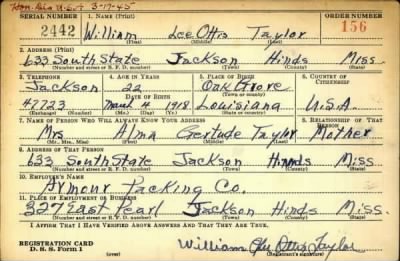 Hon. Dis U.S.A 3-17-45
SERIAL NUMBER 1. NAME (Print) ORDER NUMBER
2442 William Lee Ottis Taylor 156
2. ADDRESS (Print)
633 South State Jackson Hinds Miss.
(Number and street or R. F. D. number) (Town) (County) (State)
3. TELEPHONE 4. AGE IN YEARS 5. PLACE OF BIRTH 6. COUNTRY OF CITIZENSHIP
Jackson 22 Oak Grove
DATE OF BIRTH (Town or county)
47723 March 4 1918 Louisiana U.S.A.
(Exchange) (Number) (Mo.) (Day) (Yr.) (State or country)
7. NAME OF PERSON WHO WILL ALWAYS KNOW YOUR ADDRESS 8. RELATIONSHIP OF THAT PERSON
Mrs Alma Gertude Taylor Mother
(Mr., Mrs., Miss) (First) (Middle) (Last)
9. ADDRESS OF THAT PERSON
633 South State Jackson Hinds Miss.
(Number and street or R. F. D. number) (Town) (County) (State)
10. EMPLOYER'S NAME
Armour Packing Co.
11. PLACE OF EMPLOYMENT OR BUSINESS
327 East Pearl Jackson Hinds Miss.
(Number and street or R. F. D. number) (Town) (County) (State)
I AFFIRM THAT I HAVE VERIFIED ABOVE ANSWERS AND THAT THEY ARE TRUE.
REGISTRATION CARD
D. S. S. Form 1
William Lee Ottis Taylor
(Registrant's signature)